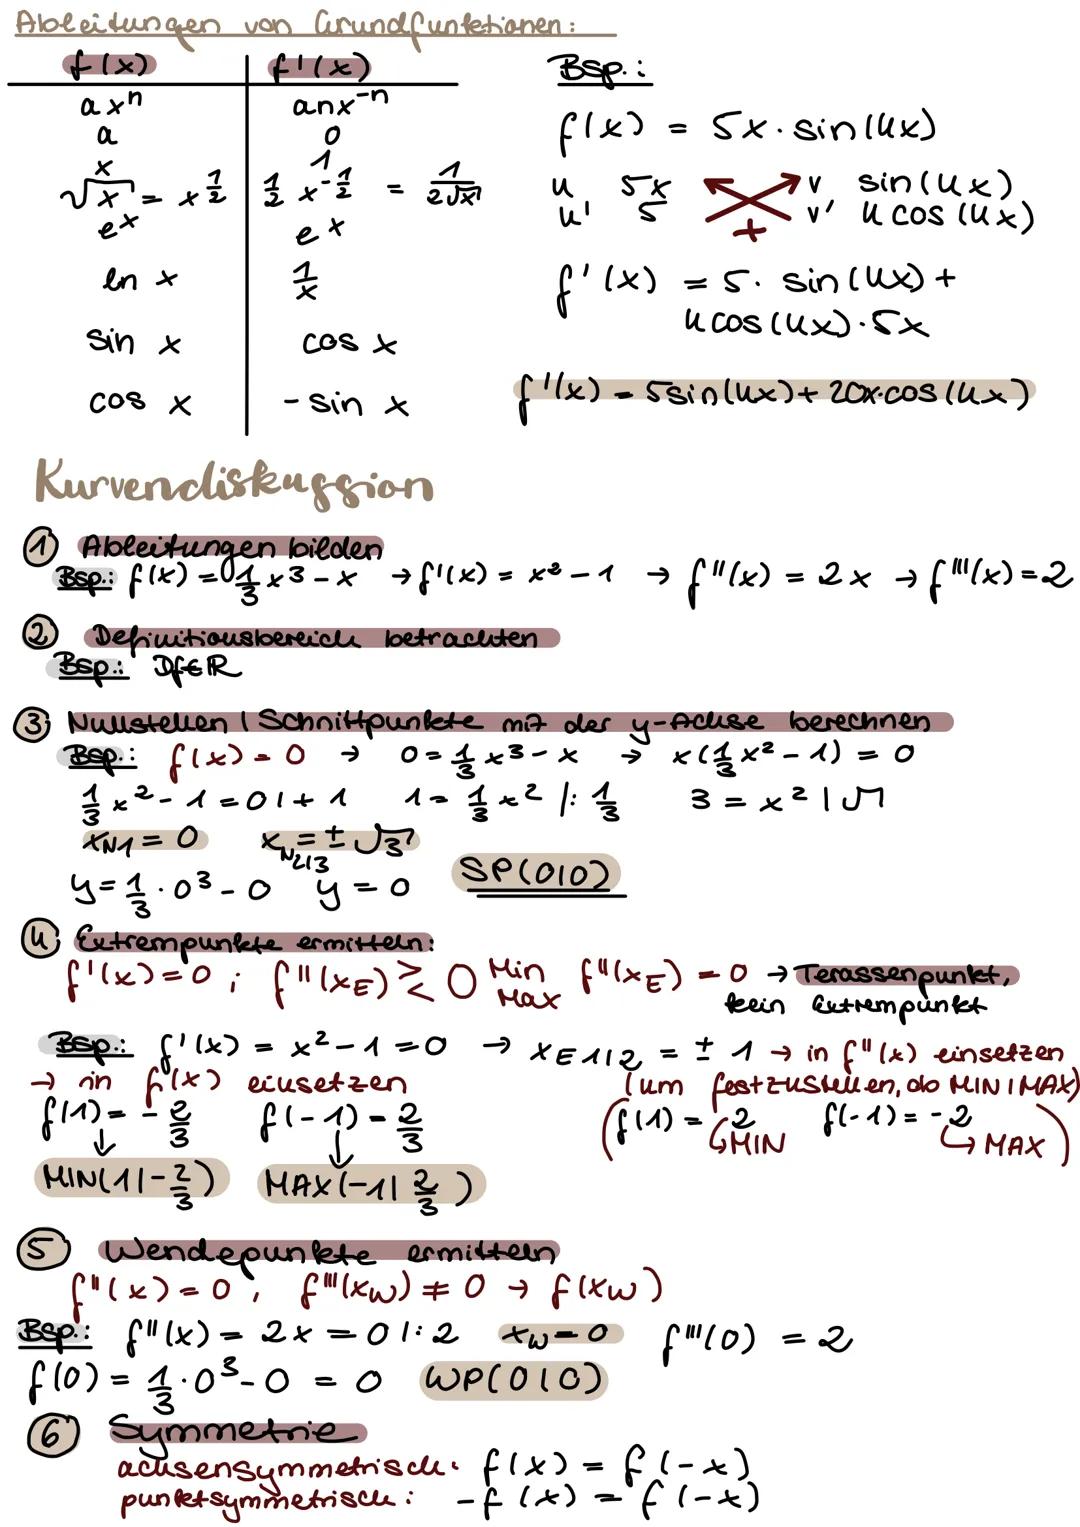 Ableitungen von Grundfunktionen:
f(x) f'(x)
ax^n anx^-n
a 0
x 1
√x = x^1/2 1/2 x^-1/2 = 1/2√x
e^x e^x
ln x 1/x
sin x cos x
cos x - sin x
Bsp.:
f(x) = 5x · sin(4x)
u 5x v sin(4x)
u' 5 v' 4 cos(4x)
+
f'(x) = 5 · sin(4x) +
4cos(4x) · 5x
f'(x) = 5sin(4x) + 20x·cos(4x)
Kurvendiskussion
① Ableitungen bilden
Bsp.: f(x) = 1/3 x³ - x → f'(x) = x² - 1 → f''(x) = 2x → f'''(x) = 2
② Definitionsbereich betrachten
Bsp.: Df∈ℝ
③ Nullstellen | Schnittpunkte mit der y-Achse berechnen
Bsp.: f(x) = 0 → 0 = 1/3 x³ - x → x(1/3 x² - 1) = 0
1/3 x² - 1 = 0 | + 1 1 = 1/3 x² |: 1/3 3 = x² | √
xN1 = 0 xN2|3 = ± √3
y = 1/3 · 0³ - 0 y = 0 SP(0|0)
④ Extrempunkte ermitteln:
f'(x) = 0 ; f''(xE) ≷ 0 Min Max f''(xE) = 0 → Terassenpunkt,
kein Extrempunkt
Bsp.: f'(x) = x² - 1 = 0 → xE1|2 = ± 1 → in f''(x) einsetzen
(um festzustellen, ob MIN|MAX)
→ in f(x) einsetzen
f(1) = - 2/3 f(-1) = 2/3 (f(1) = 2 ↳ MIN f(-1) = -2 ↳ MAX)
MIN(1|-2/3) MAX(-1|2/3)
⑤ Wendepunkte ermitteln
f''(x) = 0, f'''(xW) ≠ 0 → f(xW)
Bsp.: f''(x) = 2x = 0 |: 2 xW = 0 f'''(0) = 2
f(0) = 1/3 · 0³ - 0 = 0 WP(0|0)
⑥ Symmetrie
achsensymmetrisch: f(x) = f(-x)
punktsymmetrisch: -f(x) = f(-x)